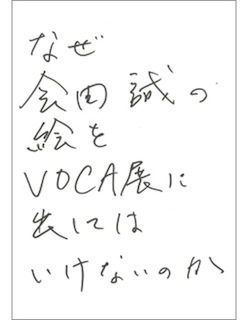 なぜ
会田誠の
絵を
VOCA展に
出しては
いけないのか